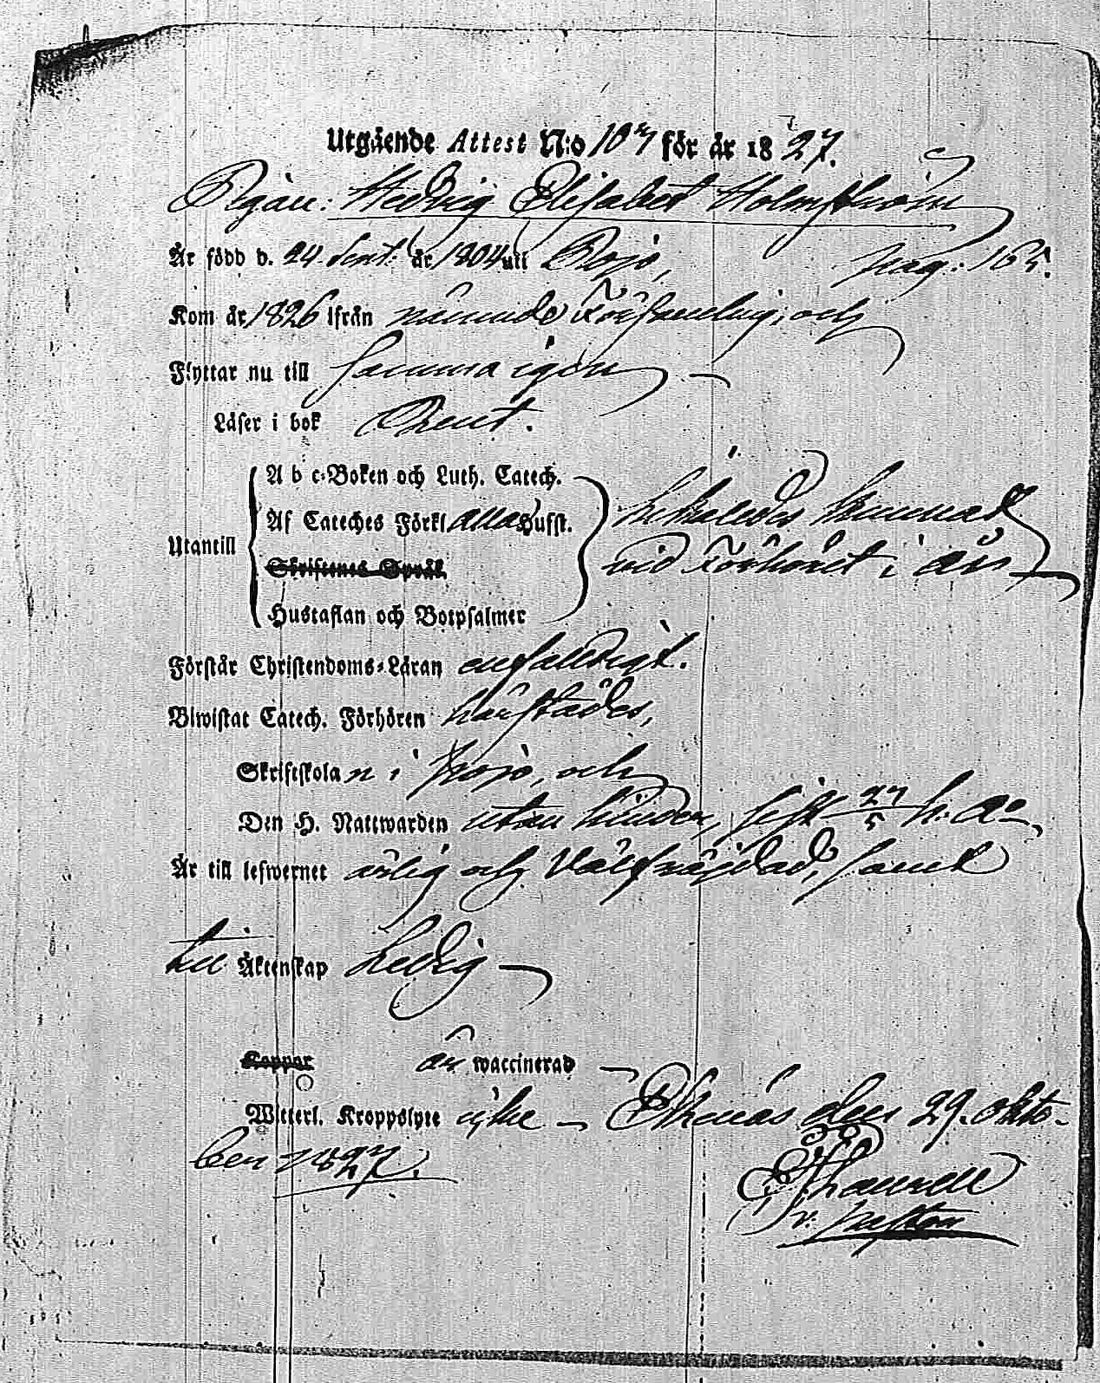 Utgående Attest N:o 107 för år 1827.
Pigan: Hedvig Elisabet Holmström
Är född d. 24 Sept. år 1804 uti Pojo, pag: 165.
Kom år 1826 ifrån nämnde Församling, och
Flyttar nu till samma igen —
Läser i bok Rent.
A b c-Boken och Luth. Catech.
Utantill
Af Cateches Förkl alla Hufst.
Skriftenes Språk
Hustaflan och Botpsalmer
hitkallad
vid Förhöret i år —
Förstår Christendoms-Läran enfaldigt.
Biwistat Catech. Förhören härstädes,
Skriftskolan i Pojo, och
Den H. Nattwarden utan hinder, sist 27/5 h. a. —
Är till lefwernet ärlig och välfräjdad, samt
till Äktenskap Ledig —
Koppor är waccinerad —
Witterl. Kroppslyte icke — Ekenäs den 29. Okto-
ber 1827.
v. Pastor